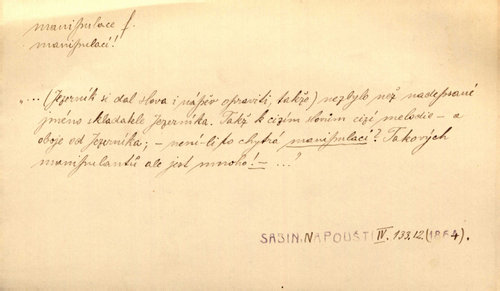 manipulace f.
manipulací!
„... (Jezerník si dal slova i nápěv opraviti, takže) nezbylo než nadepsané
jméno skladatele Jezerníka. Takž k cizím slovům cizí melodie – a
oboje od Jezerníka; – není-li to chytrá manipulací? Takových
manipulantů ale jest mnoho! – ..."
SABINA, NA POUŠTI IV. 133,12. (1864).